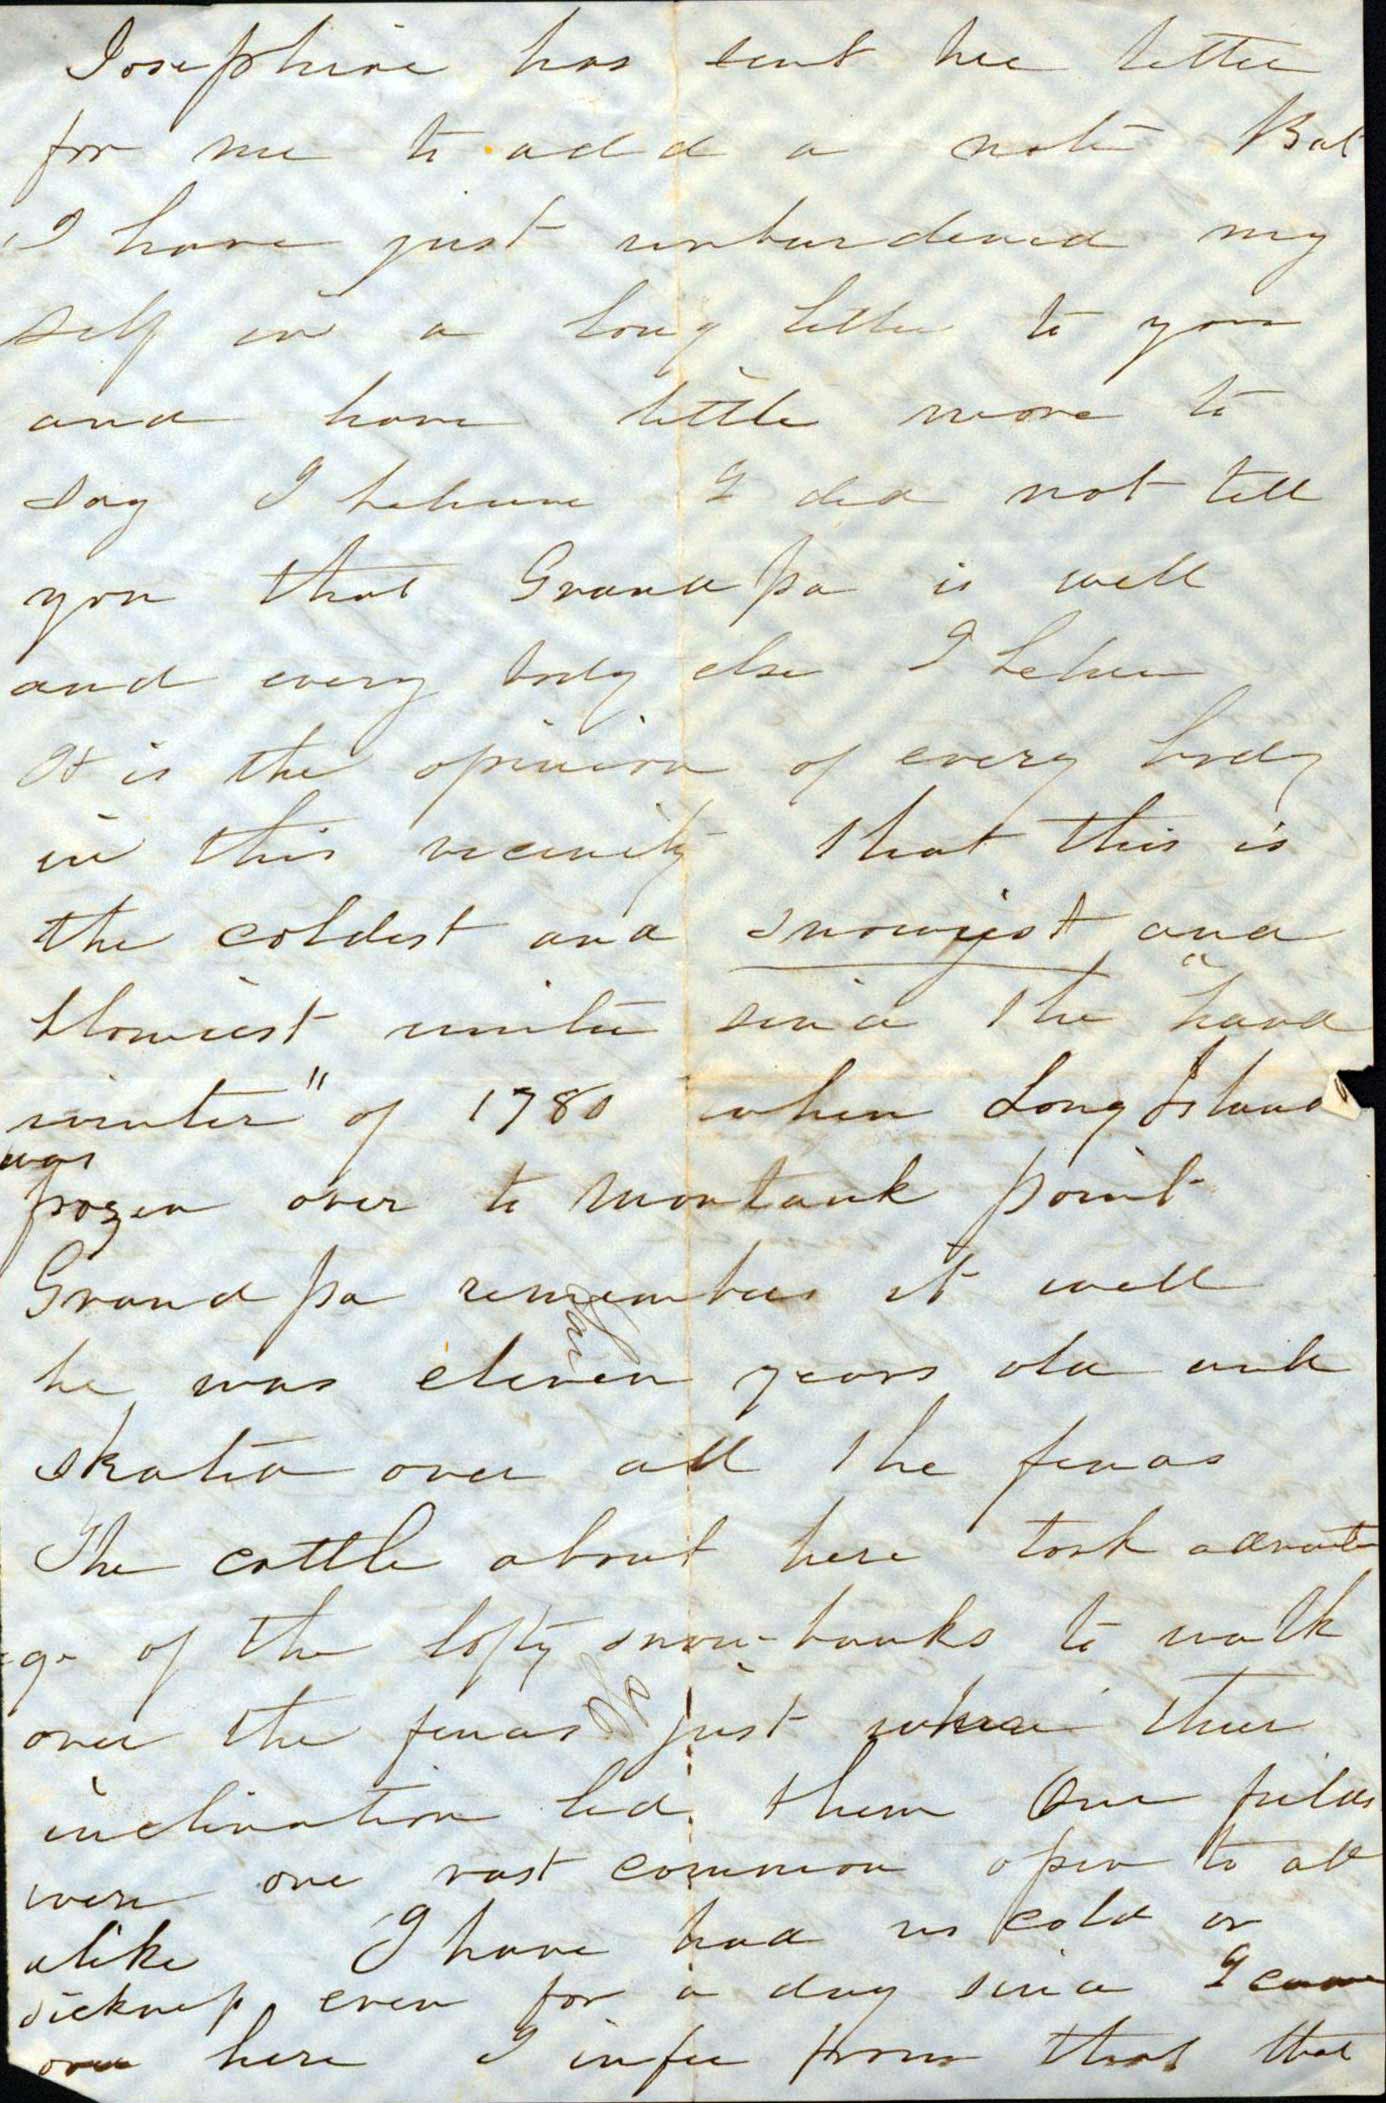 Josephine has sent her letter
for me to add a note But
I have just unburdened my
self in a long letter to you
and have little more to
say I believe I did not tell
you that Grand Pa is well
and every body else I believe
It is the opinion of every body
in this vicinity that this is
the coldest and snowyest and
blowiest winter since the "hard
winter" of 1780 when Long Island
was
frozen over to Montauk point
Grand Pa remembers it well
he was eleven years old and
skated over all the fences
The cattle about here took advanta
ge of the lofty snow-banks to walk
over the fences just where their
inclination led them Our fields
were one vast common open to all
alike I have had no cold or
sickness even for a day since I came
over here I infer from that that